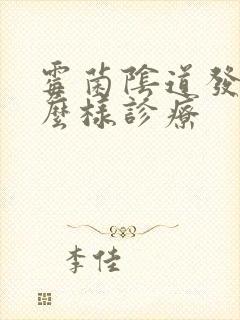 霉菌陰道發
麼樣診療
李佳